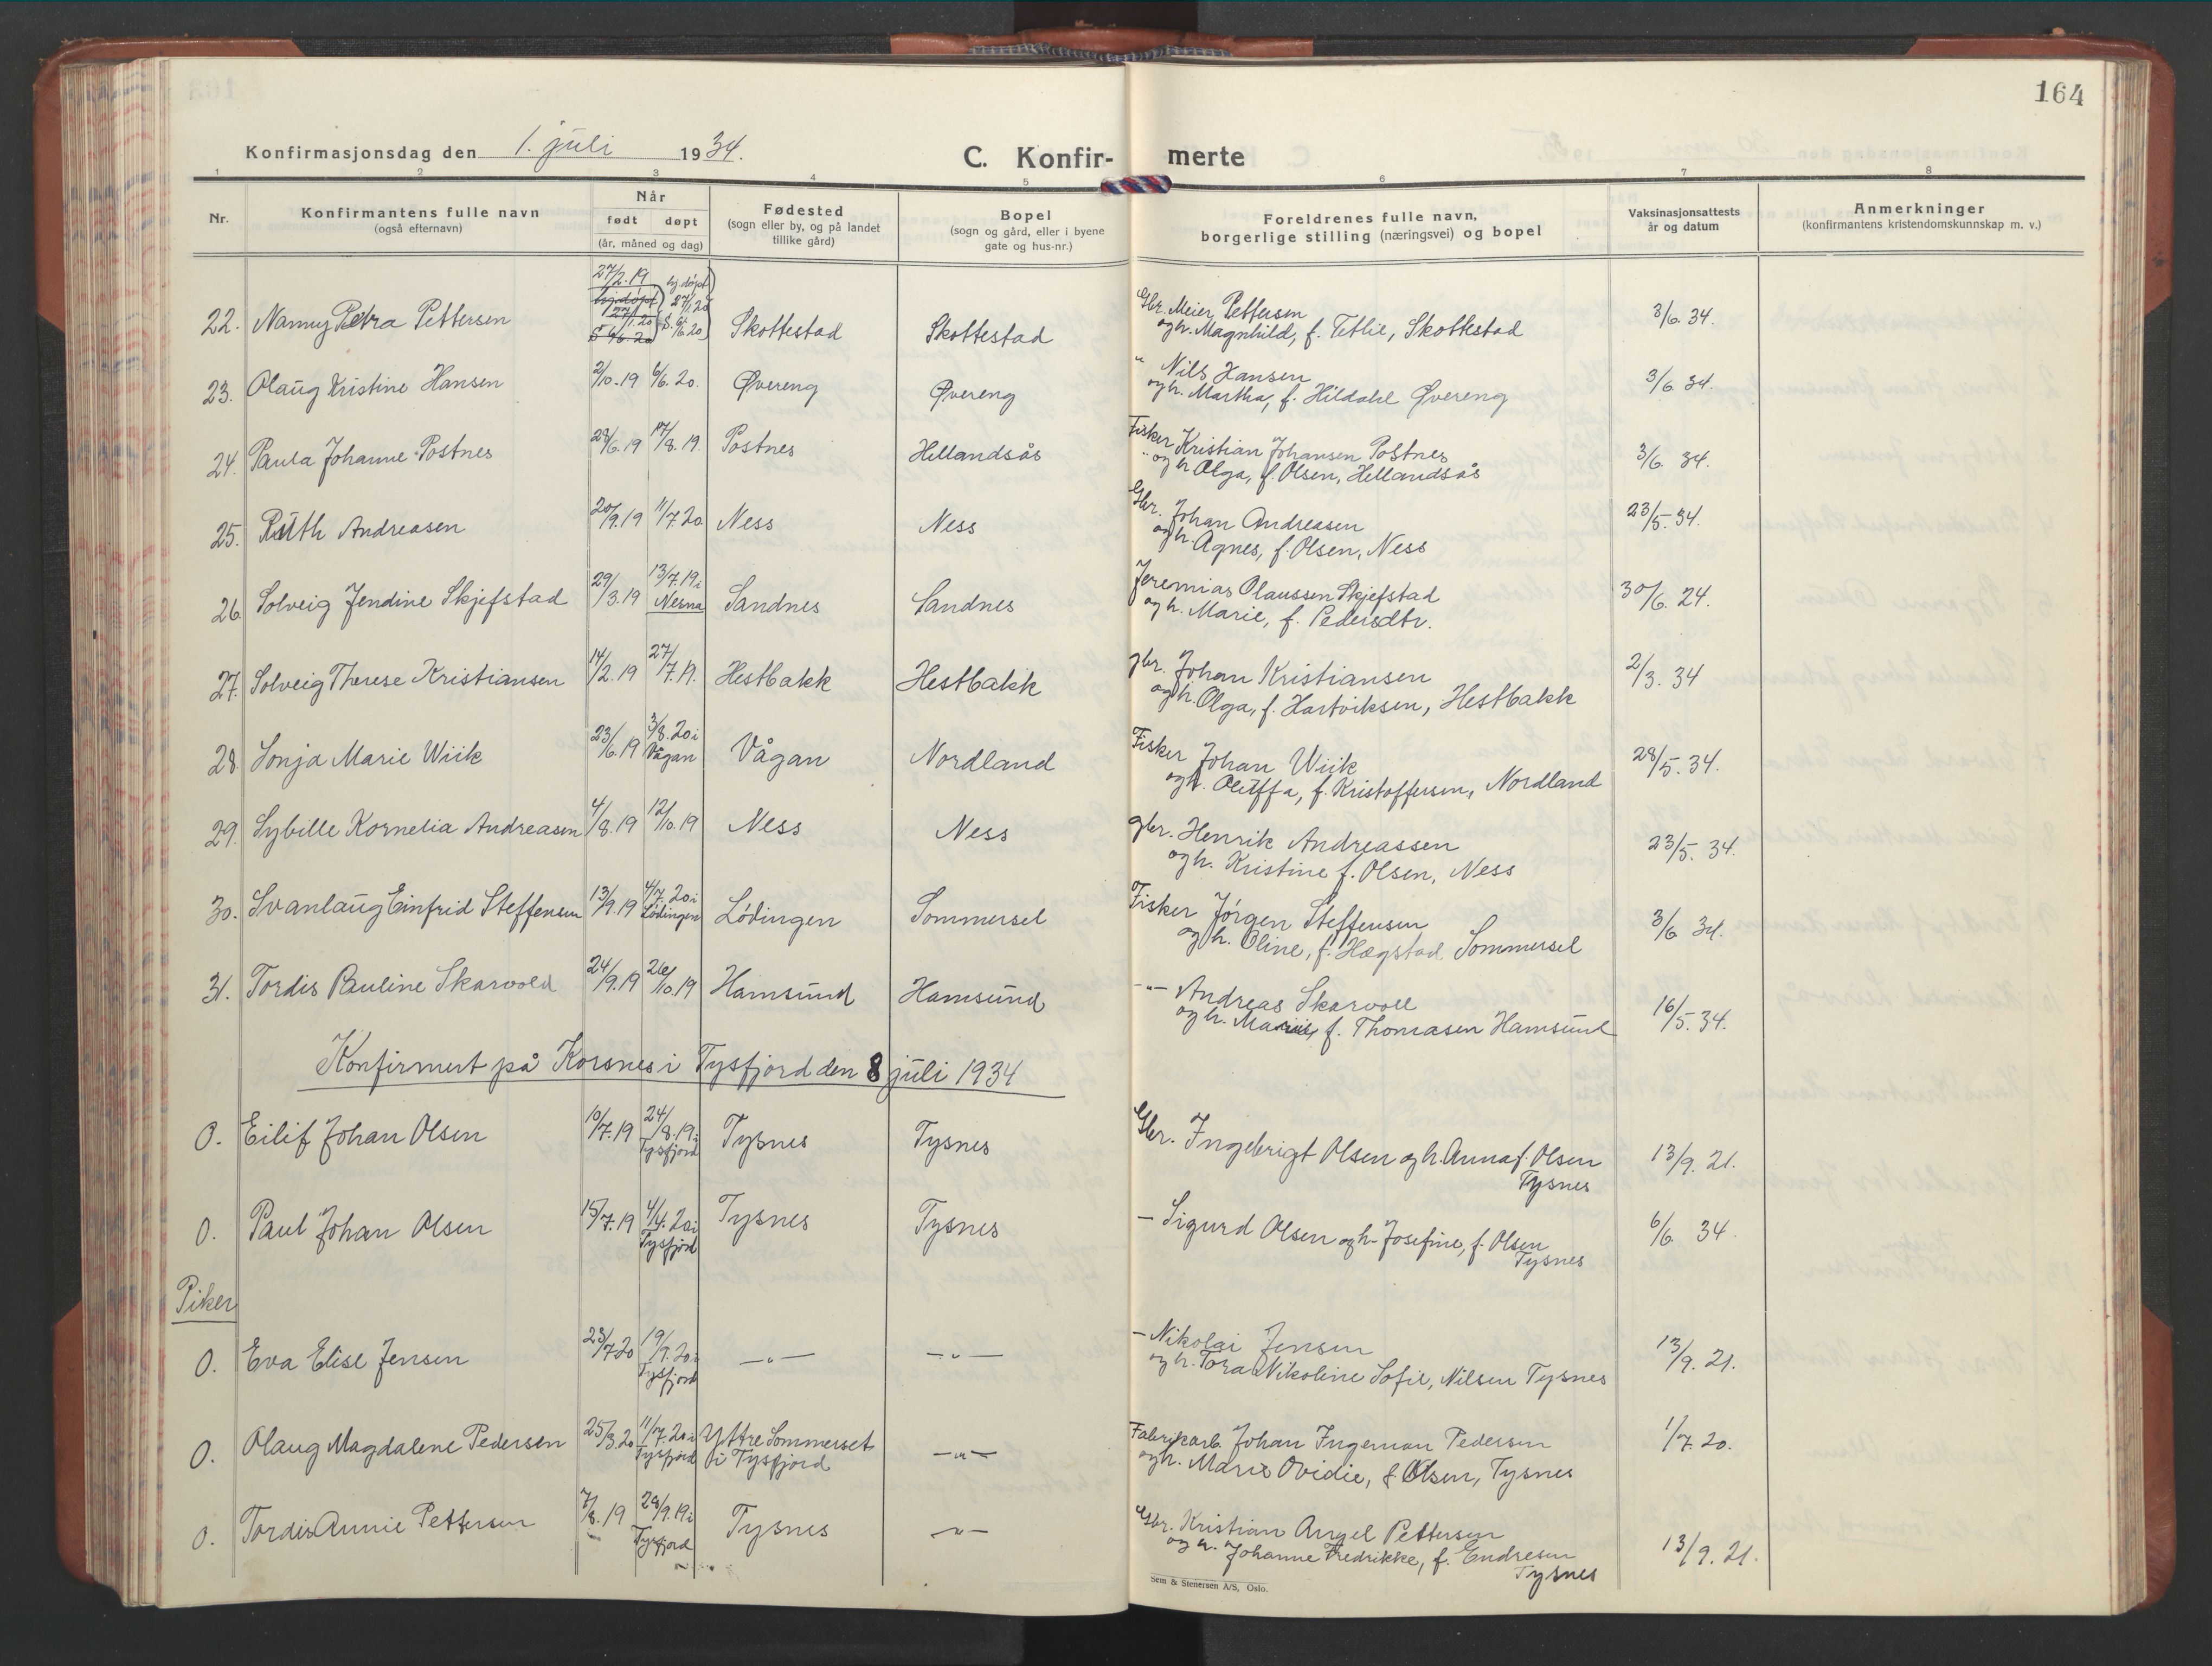 164
Konfirmasjonsdag den 1. juli 1934.
C. Konfir- merte
1 2 3 4 5 6 7 8
Nr.
Konfirmantens fulle navn
(også efternavn)
Når
født døpt
(år, måned og dag)
Fødested
(sogn eller by, og på landet
tillike gård)
Bopel
(sogn og gård, eller i byene
gate og hus-nr.)
Foreldrenes fulle navn,
borgerlige stilling (næringsvei) og bopel
Vaksinasjonsattests
år og datum
Anmerkninger
(konfirmantens kristendomskunnskap m. v.)
22. Nanny Petra Pettersen 27/2.19 hj.døpt 27/1.20 S. 6/6.20 Skottestad Skottestad Gbr. Meier Pettersen 3/6. 34.
og h. Magnhild, f. Tetlie, Skottestad
23. Olaug Kristine Hansen 2/10.19 6/6.20. Øvereng Øvereng " Nils Hansen 3/6. 34.
og h. Martha, f. Hildahl Øvereng
24. Paula Johanne Postnes 28/6.19 17/8.19. Postnes Hellandsås Fisker Kristian Johansen Postnes 3/6. 34.
og h. Olga, f. Olsen, Hellandsås
25. Ruth Andreasen 20/9.19 11/7.20 Ness Ness Gbr. Johan Andreasen 23/5. 34.
og h. Agnes, f. Olsen, Ness
26. Solveig Jendine Skjefstad 29/3.19 13/7.19 i Nesna Sandnes Sandnes Jeremias Olaussen Skjefstad 30/6. 24.
og h. Marie, f. Pedersdtr.
27. Solveig Therese Kristiansen 14/2.19 27/7.19. Hestbakk Hestbakk gbr. Johan Kristiansen 2/3. 34
og h. Olga, f. Hartviksen, Hestbakk
28. Sonja Marie Wiik 23/6.19 3/8.20 i Vågan Vågan Nordland Fisker Johan Wiik 28/5. 34.
og h. Oluffa, f. Kristoffersen, Nordland
29. Sybille Kornelia Andreasen 4/8.19 12/10.19 Ness Ness gbr. Henrik Andreassen 23/5. 34.
og h. Kristine f. Olsen, Ness
30. Svanlaug Einfrid Steffensen 13/9.19 4/7.20 i Lødingen Lødingen Sommersel Fisker Jørgen Steffensen 3/6 34.
og h. Oline, f. Hægstad Sommersel
31. Tordis Pauline Skarvold 24/9.19 26/10.19 Hamsund Hamsund -"- Andreas Skarvoll 16/5. 34.
og h. Marie, f. Thomasen Hamsund
Konfirmert på Korsnes i Tysfjord den 8 juli 1934
0. Eilif Johan Olsen 10/7.19 24/8.19 i Tysfjord Tysnes Tysnes Gbr. Ingebrigt Olsen og h. Anna f. Olsen 13/9. 21.
Tysnes
0. Paul Johan Olsen 15/7.19 4/4.20 i Tysfjord Tysnes Tysnes - Sigurd Olsen og h. Josefine, f. Olsen 6/6 34.
Tysnes
Piker
0. Eva Elise Jensen 23/7 20 19/9.20 i Tysfjord -"- -"- - Nikolai Jensen 13/9. 21.
og h. Tora Nikoline Sofie, Nilsen Tysnes
0. Olaug Magdalene Pedersen 25/3.20 11/7.20 i Tysfjord Yttre Sommerset i Tysfjord -"- Fabrikarb. Johan Ingeman Pedersen 1/7. 20.
og h. Marie Ovidie, f. Olsen, Tysnes
0. Tordis Annie Pettersen 7/8.19 28/9.19 i Tysfjord Tysnes -"- Gbr. Kristian Angel Pettersen 13/9. 21.
og h. Johanne Fredrikke, f. Endresen
Tysnes
Sem & Stenersen A/S, Oslo.